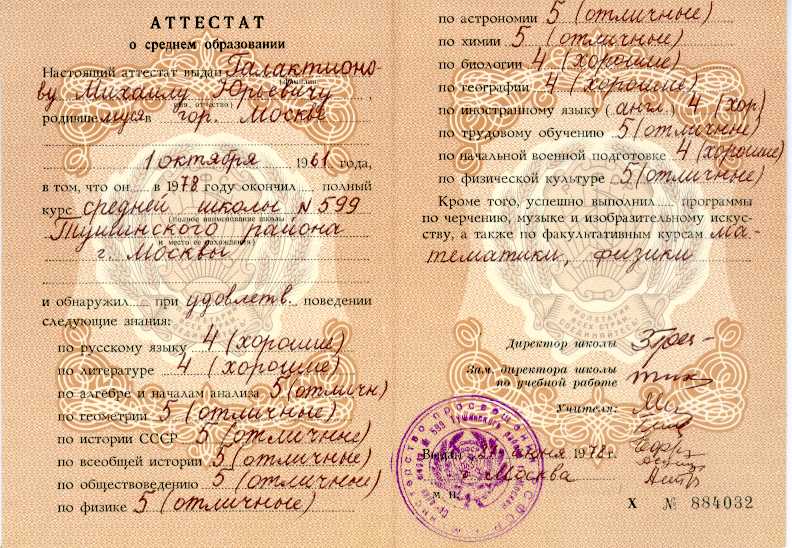 АТТЕСТАТ
о среднем образовании
Настоящий аттестат выдан Галактионо-
ву Михаилу Юрьевичу,
родившемуся в гор. Москве
1 октября 1961 года,
в том, что он в 1978 году окончил полный
курс средней школы № 599
(полное наименование школы
Тушинского района
и место ее нахождения)
г. Москвы
и обнаружил при удовлетв. поведении
следующие знания:
по русскому языку 4 (хорошие)
по литературе 4 (хорошие)
по алгебре и началам анализа 5 (отличн)
по геометрии 5 (отличные)
по истории СССР 5 (отличные)
по всеобщей истории 5 (отличные)
по обществоведению 5 (отличные)
по физике 5 (отличные)
по астрономии 5 (отличные)
по химии 5 (отличные)
по биологии 4 (хорошие)
по географии 4 (хорошие)
по иностранному языку (англ.) 4 (хор)
по трудовому обучению 5 (отличные)
по начальной военной подготовке 4 (хорошие)
по физической культуре 5 (отличные)
Кроме того, успешно выполнил программы
по черчению, музыке и изобразительному искус-
ству, а также по факультативным курсам ма-
тематики, физики
ПРОЛЕТАРИИ
ВСЕХ СТРАН
СОЕДИНЯЙТЕСЬ
Директор школы
Зам. директора школы
по учебной работе
Учителя:
Выдан июня 1978 г.
г. Москва
м. п.
Х № 884032